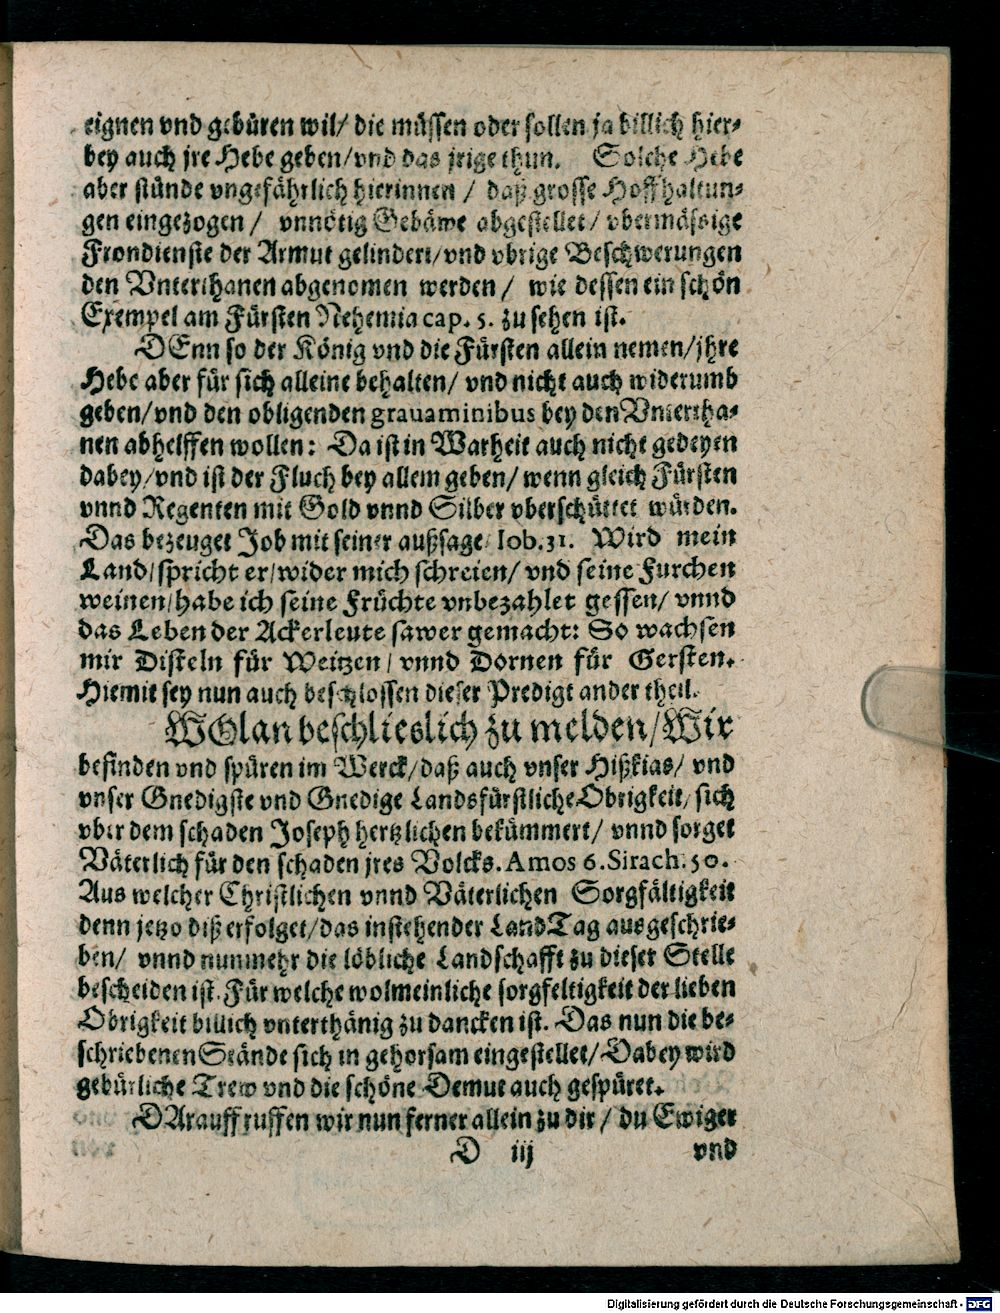 eignen vnd gebüren wil/ die müssen oder sollen ja billich hier-
bey auch jre Hebe geben/vnd das jrige thun. Solche Hebe
aber stünde vngefährlich hierinnen / daß grosse Hoffhaltun-
gen eingezogen / vnnötig Gebäwe abgestellet/ vbermässige
Frondienste der Armut gelindert/vnd vbrige Beschwerungen
den Vnterthanen abgenomen werden / wie dessen ein schön
Exempel am Fürsten Nehemia cap. 5. zu sehen ist.
DEnn so der König vnd die Fürsten allein nemen/jhre
Hebe aber für sich alleine behalten/ vnd nicht auch widerumb
geben/vnd den obligenden gravaminibus bey den Vntertha-
nen abhelffen wollen: Da ist in Warheit auch nicht gedeyen
dabey/vnd ist der Fluch bey allem geben/ wenn gleich Fürsten
vnnd Regenten mit Gold vnnd Silber vberschüttet würden.
Das bezeuget Job mit seiner außsage/ Iob.31. Wird mein
Land/spricht er/wider mich schreien/ vnd seine Furchen
weinen/habe ich seine Früchte vnbezahlet gessen/ vnnd
das Leben der Ackerleute sawer gemacht: So wachsen
mir Disteln für Weitzen/ vnnd Dornen für Gersten.
Hiemit sey nun auch beschlossen dieser Predigt ander theil.
WOlan beschlieslich zu melden/Wir
befinden vnd spüren im Werck/daß auch vnser Hißkias/ vnd
vnser Gnedigste vnd Gnedige Landsfürstliche Obrigkeit/ sich
vber dem schaden Joseph hertzlichen bekümmert/ vnnd sorget
Väterlich für den schaden jres Volcks. Amos 6. Sirach. 50.
Aus welcher Christlichen vnnd Väterlichen Sorgfältigkeit
denn jetzo diß erfolget/das instehender LandTag ausgeschrie-
ben/ vnnd nunmehr die löbliche Landschafft zu dieser Stelle
bescheiden ist. Für welche wolmeinliche sorgfeltigkeit der lieben
Obrigkeit billich vnterthänig zu dancken ist. Das nun die be-
schriebenen Stände sich in gehorsam eingestellet/ Dabey wird
gebürliche Trew vnd die schöne Demut auch gespüret.
DArauff ruffen wir nun ferner allein zu dir / du Ewiger
D iij vnd
Digitalisierung gefördert durch die Deutsche Forschungsgemeinschaft - DFG